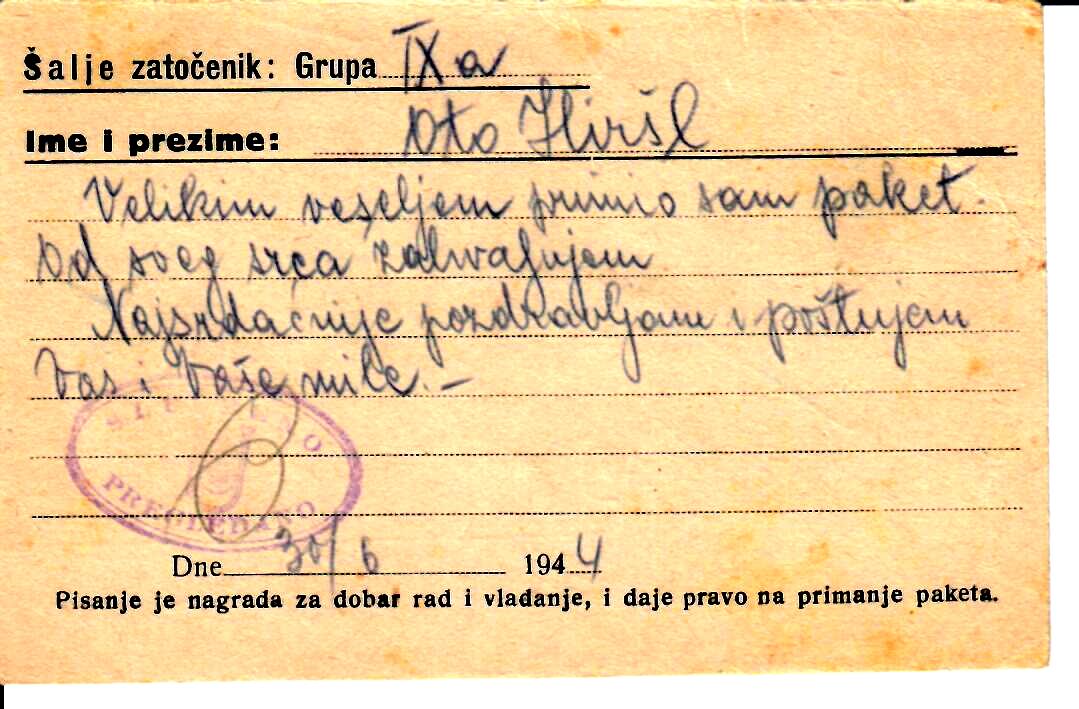 Šalje zatočenik: Grupa IX a
Ime i prezime: Oto Hiršl
Velikim veseljem primio sam paket.
Od sveg srca zahvaljujem
Najsrdačnije pozdravljam i poštujem
Vas i Vaše mile. –
PREGLEDANO
Dne 30/6 1944
Pisanje je nagrada za dobar rad i vladanje, i daje pravo na primanje paketa.